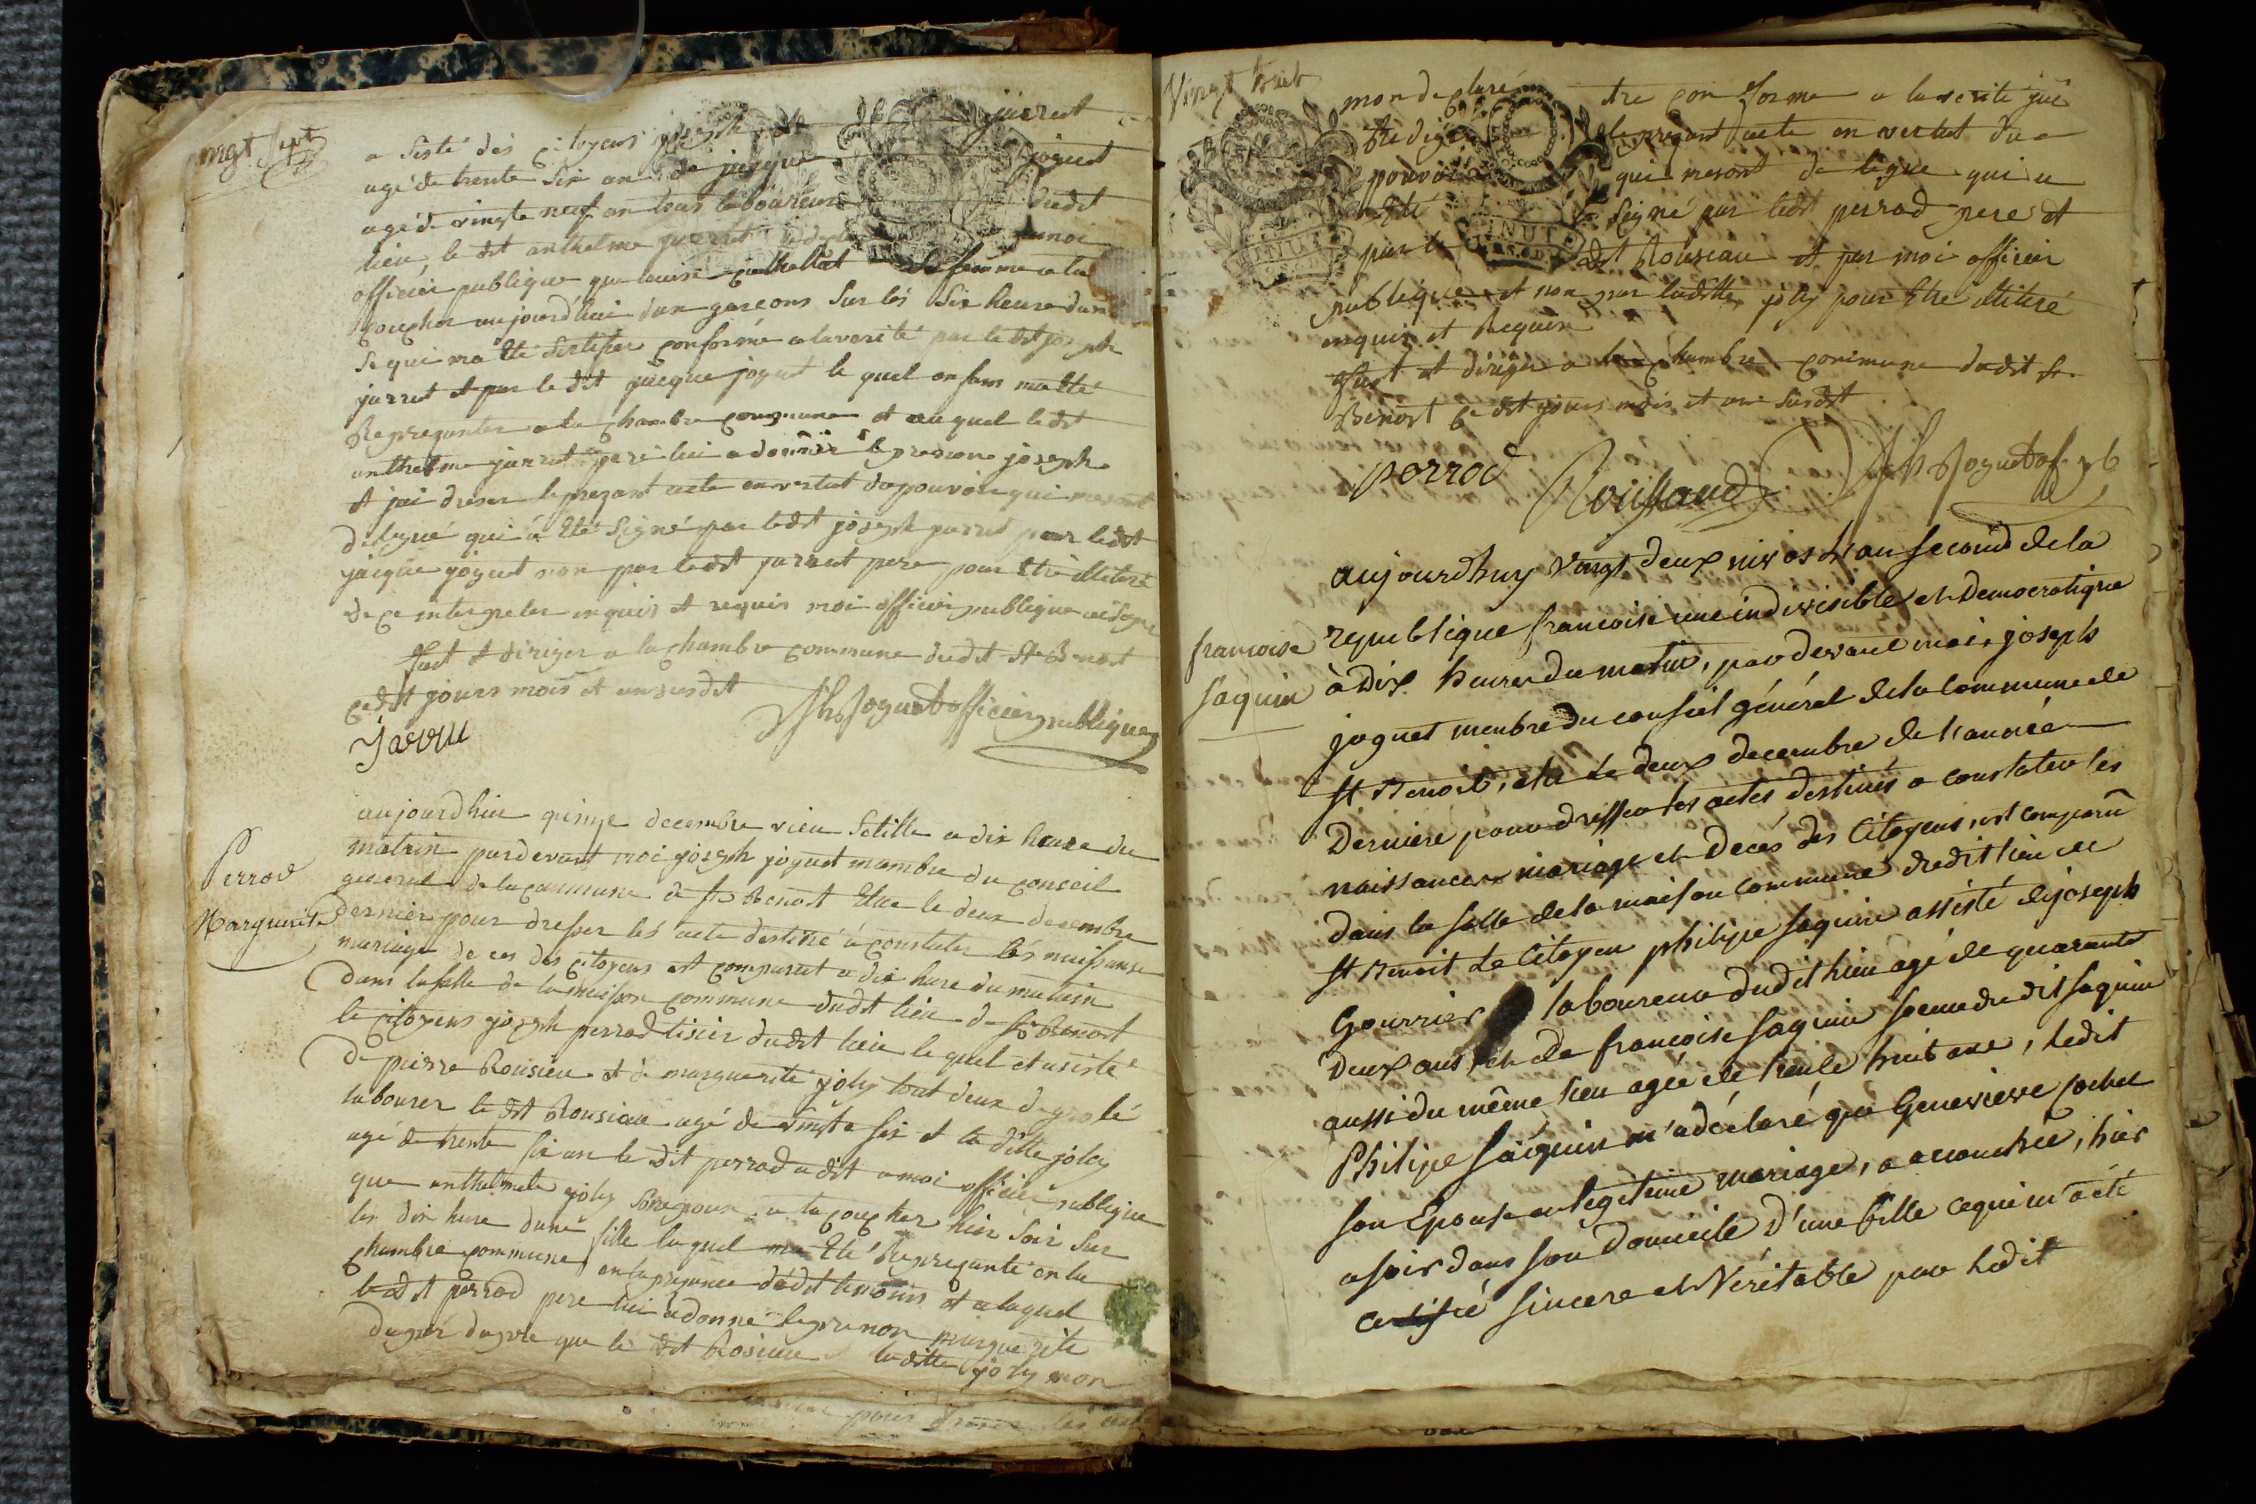 vingt sept
a sisté des citoyens joseph jarret
agé de trente six an de jacque joguet
agé de vingte neuf an tous laboureur dudit
lieu, le dit anthelme jarret a moi
officier publique que louise sa femme a la
coucher aujourdhui dun garcons sur les six heure du
se qui ma été sertifier conforme a la verité par le dit joseph
jarret et par le dit jacque joguet le quel enfans ma été
Reprezanter a la chambre commune et au quel ledit
anthelme jarret pere lui a donner le prenom joseph
et jai dreser le prezant acte en vertut du pouvoir qui me sont
delegué qui a été signé par ledit joseph jarret par ledit
jacque joguet non par ledit jarret pere pour etre illiteré
de ce interpeler enquis et requis moi officier publique
fait et diriger a la chambre commune dudit St Benoit
ce dit jours mois et an susdit
Jarru
Jh Joguet officier publique
aujourdhui quinze decembre vieu setille a dix heure du
Perrod
Marguerite
matin pardevant moi joseph joguet mambre du conseil
general de la commune de St Benoit Elue le deux decembre
dernier pour dresser les acte destiné a constater les naissance
mariage de ces des citoyens est comparut a dix hure du matain
dans la salle de la maison commune dudit lieu de St Benoit
le citoyens joseph perrod tisier dudit lieu le quel et asisté
de pierre Rousieu et de marguerite joly tout deux de grolé
labourer le dit Rousiau agé de vingte six et la ditte joly
agé de trente six an le dit perrod a dit a moi officier publique
que anthelmete joly son epouse a la coucher hier soir sur
les dix hure dune fille laquel ma Eté Reprezanté en la
chambre commune en la prezance dedit temoins et a laquel
le dit perrod pere lui a donné le prenon marguerite
que le dit Rosieu la ditte joly mon
pour dresser les acte
Vingt huit
mon declaré etre conforme a la verité jai
Redigé le prezant acte en vertut du
pouvoir qui mesont delegue qui a
eté signé par ledit perrod pere et
par le dit Rousiau et par moi officier
publique et non par laditte joly pour Etre illiteré
enquis et Requis
fait et diriger a la chambre commune dudit St
Benoit ce dit jours mois et an susdit
perrod Rousseaud Jh Joguet of. pb
aujourdhuy vingt deux nivos l'an second de la
francoise
saquin
republique francoise une indivisible et Democratique
à Dix heures du matin, par devant moi, joseph
joguet membre du conseil général de la commune de
St Benoit, elu le deux decembre de l'année
Derniere pour dresser les actes destinés a constater les
naissances mariage et Decés des Citoyens, est comparû
dans la salle de la maison commune dudit lieu de
St Benoit Le Citoyen philipe saquin assisté de joseph
Gourrier laboureur dudit lieu agé de quarante
Deux ans et de francoise saquin soeur du dit saquin
aussi du même lieu agée de trente huit ans, ledit
Philipe Saiquin m'a déclaré que Genevieve
son Epouse en legitime mariage, a accouchée, hier
a soir dans son Domicile D'une fille cequi m'a été
certifié sincere et Véritable par ledit